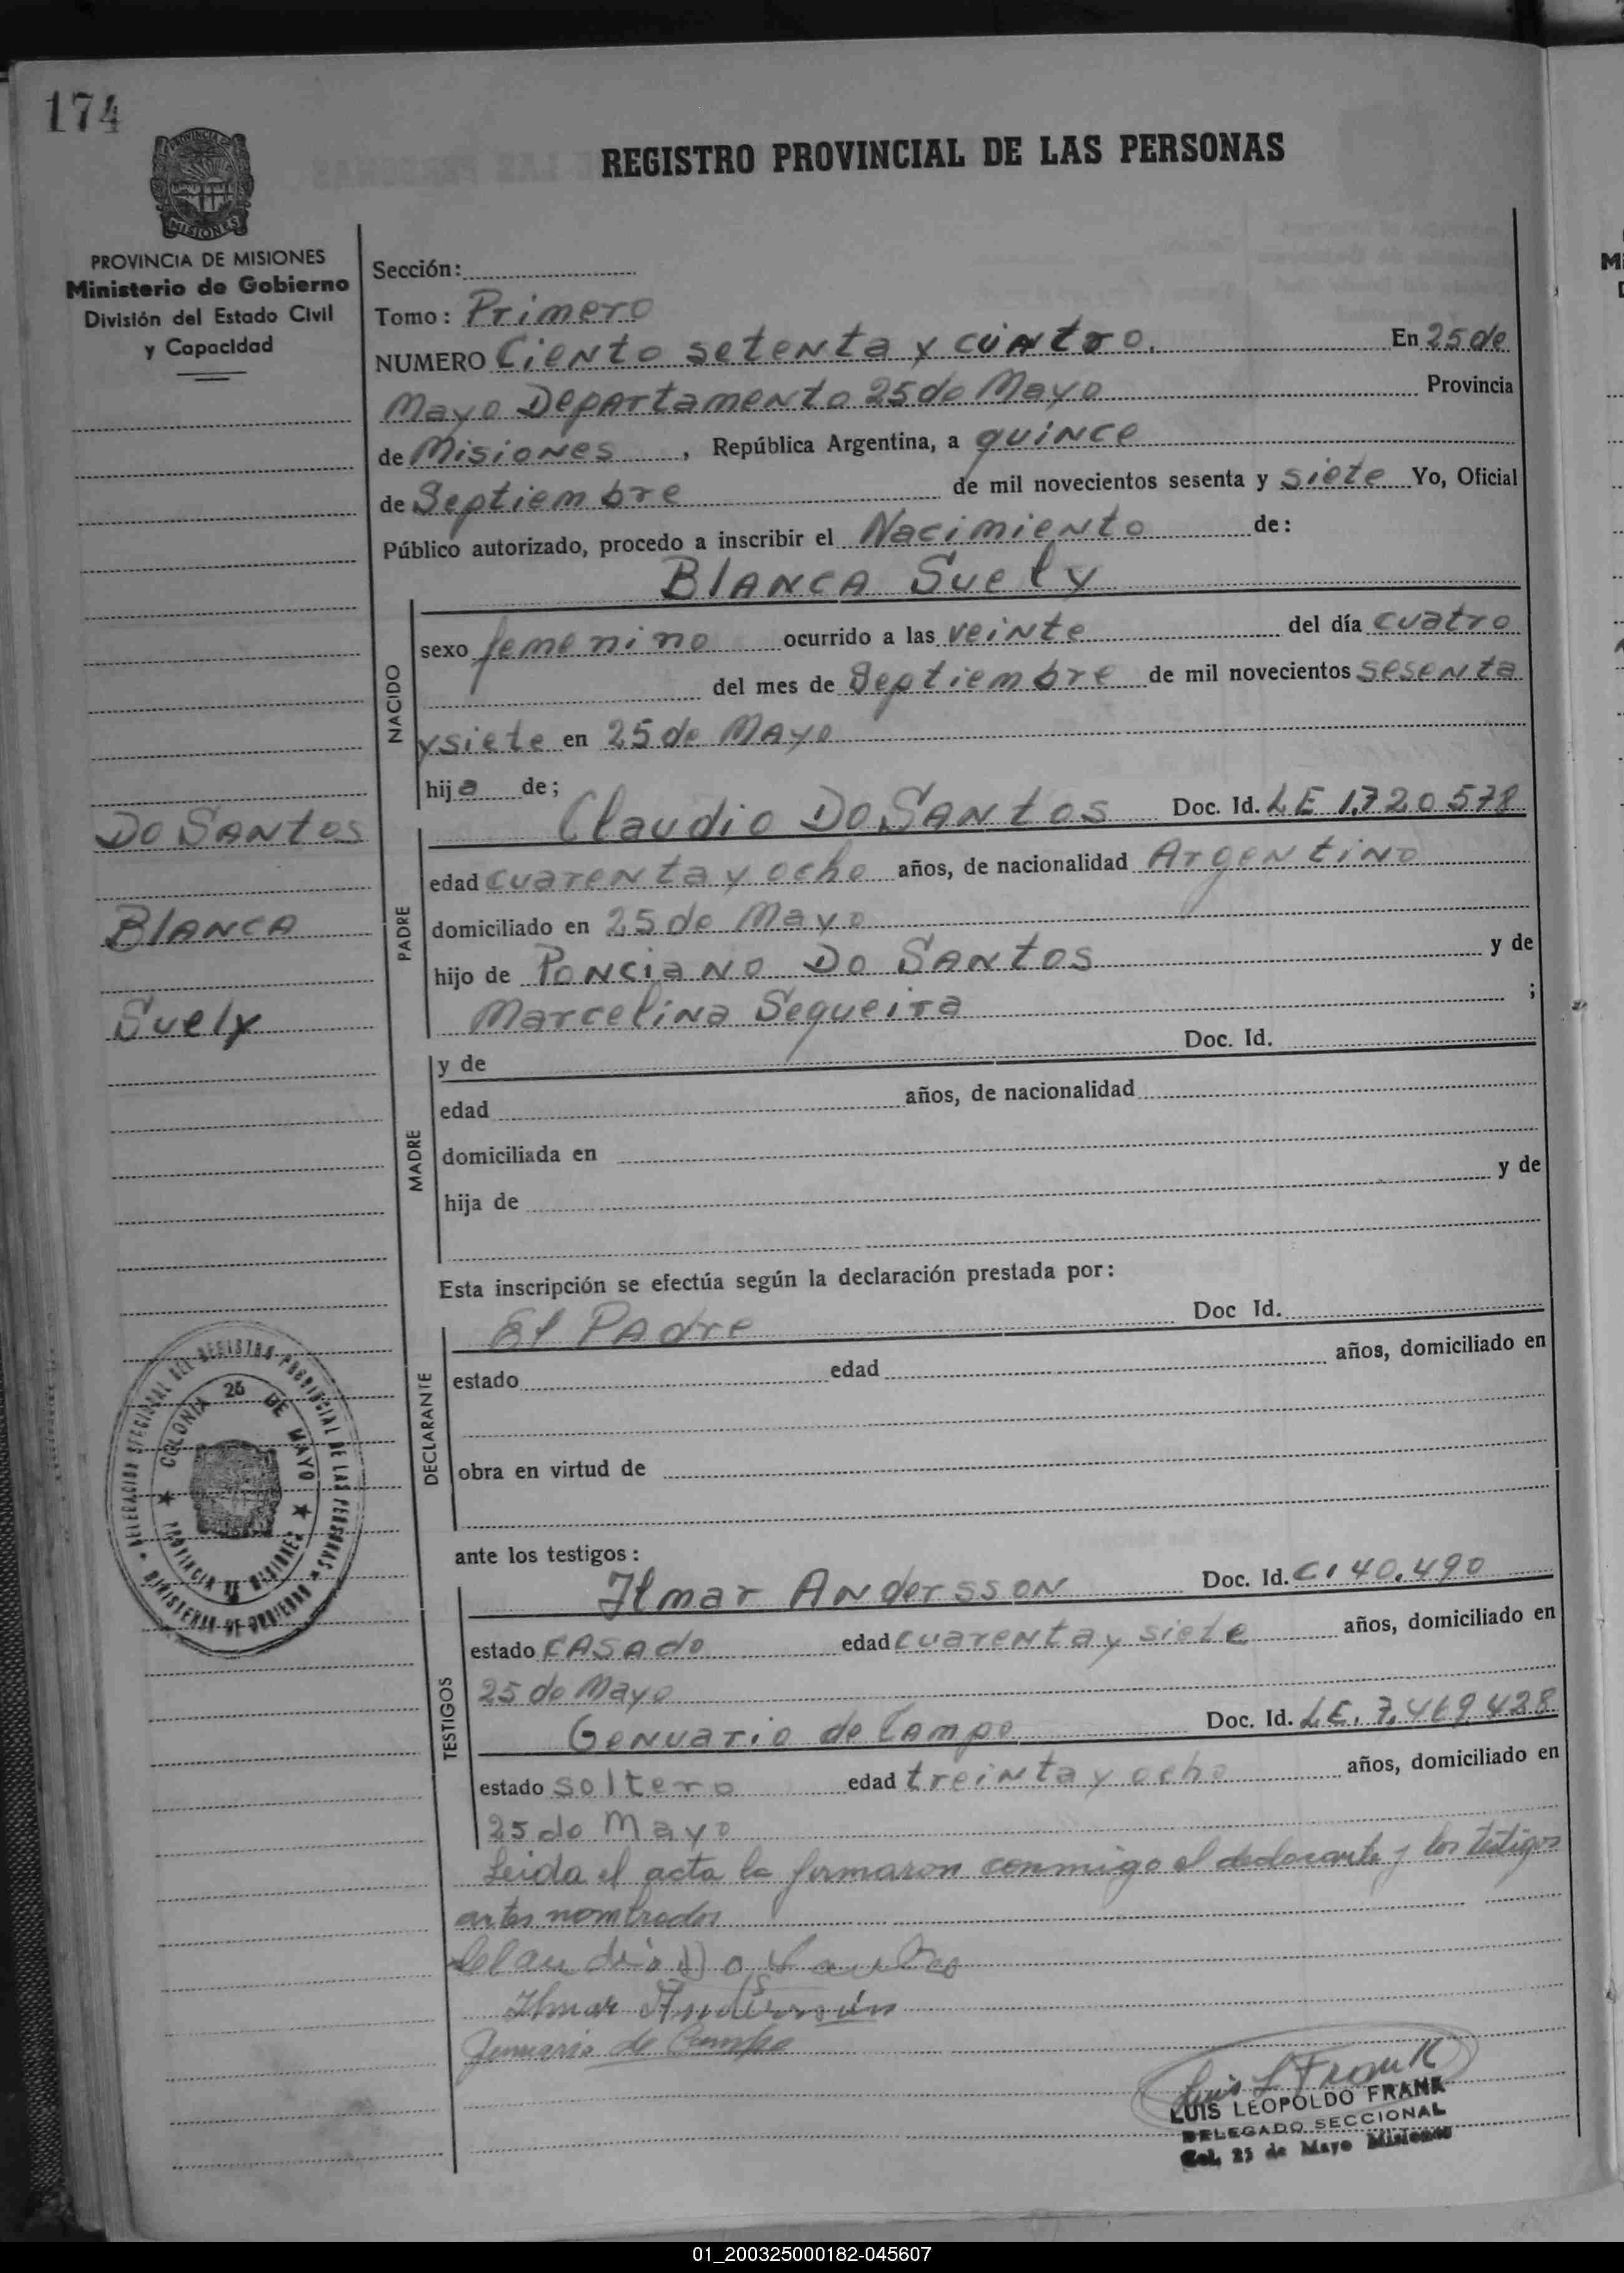 174
PROVINCIA DE
MISIONES
REGISTRO PROVINCIAL DE LAS PERSONAS
PROVINCIA DE MISIONES
Ministerio de Gobierno
División del Estado Civil
y Capacidad
Sección:
Tomo: Primero
NUMERO Ciento setenta y cuatro. En 25 de
Mayo Departamento 25 de Mayo Provincia
de Misiones, República Argentina, a quince
de Septiembre de mil novecientos sesenta y siete Yo, Oficial
Público autorizado, procedo a inscribir el Nacimiento de:
Blanca Suely
NACIDO
sexo femenino ocurrido a las veinte del día cuatro
del mes de Septiembre de mil novecientos sesenta
y siete en 25 de Mayo
hija de;
Claudio Do Santos Doc. Id. LE 1.720.578
PADRE
edad cuarenta y ocho años, de nacionalidad Argentino
domiciliado en 25 de Mayo
hijo de Ponciano Do Santos y de
Marcelina Sequeira ;
Do Santos
Blanca
Suely
MADRE
y de Doc. Id.
edad años, de nacionalidad
domiciliada en
hija de y de
Esta inscripción se efectúa según la declaración prestada por:
El Padre Doc Id.
DECLARANTE
estado edad años, domiciliado en
obra en virtud de
DELEGACION SECCIONAL DEL REGISTRO PROVINCIAL DE LAS PERSONAS
MINISTERIO DE GOBIERNO
COLONIA 25 DE MAYO
PROVINCIA DE MISIONES
ante los testigos:
Ilmar Andersson Doc. Id. C.I 40.490
TESTIGOS
estado casado edad cuarenta y siete años, domiciliado en
25 de Mayo
Genuario de Campo Doc. Id. LE. 7.469.428
estado soltero edad treinta y ocho años, domiciliado en
25 de Mayo
Leida el acta la firmaron conmigo el declarante y los testigos
antes nombrados
Claudio Do Santo
Ilmar Andersson
Genuario de Campo
Luis L Frank
LUIS LEOPOLDO FRANK
DELEGADO SECCIONAL
Col. 25 de Mayo Misiones
01_200325000182-045607